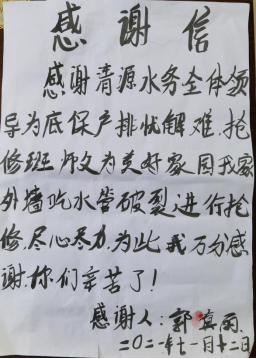 感谢信
感谢清源水务全体领
导为底保户排忧解难,抢
修班师文为美好家园我家
外墙吃水管破裂进行抢
修,尽心尽力,为此我万分感
谢,你们辛苦了!
感谢人:郭真丽
二〇二一年十一月十二日